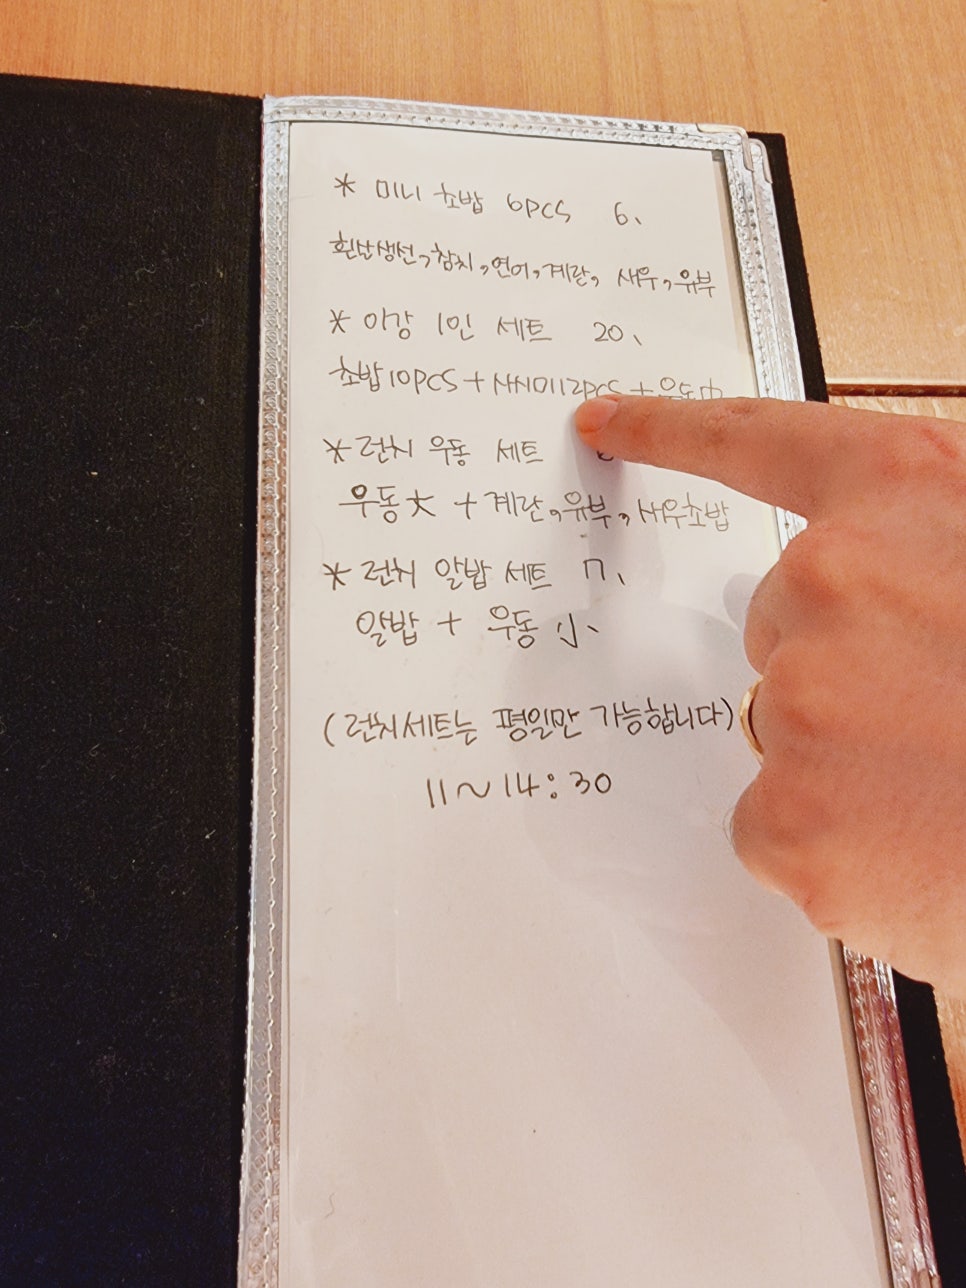 * 미니 초밥 6pcs 6、
흰살생선, 참치, 연어, 계란, 새우, 유부
* 아강 1인 세트 20、
초밥 10pcs + 사시미 12pcs + 우동 中
* 런치 우동 세트
우동大 + 계란, 유부, 새우초밥
* 런치 알밥 세트 7、
알밥 + 우동 小、
(런치세트는 평일만 가능합니다)
11~14:30